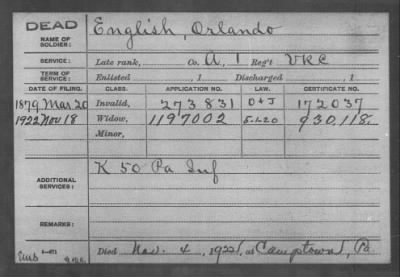 DEAD
NAME OF SOLDIER: English, Orlando
SERVICE: Late rank, Co. A, 1 Reg't VRC
TERM OF SERVICE: Enlisted , 1 Discharged , 1
DATE OF FILING. CLASS. APPLICATION NO. LAW. CERTIFICATE NO.
1879 Mar 20 Invalid, 273831 D & J 172037
1922 Nov 18 Widow, 1197002 5-1-20 930,118.
Minor,
ADDITIONAL SERVICES: K 50 Pa Inf
REMARKS:
Died Nov. 4, 1922, at Camptown, Pa.